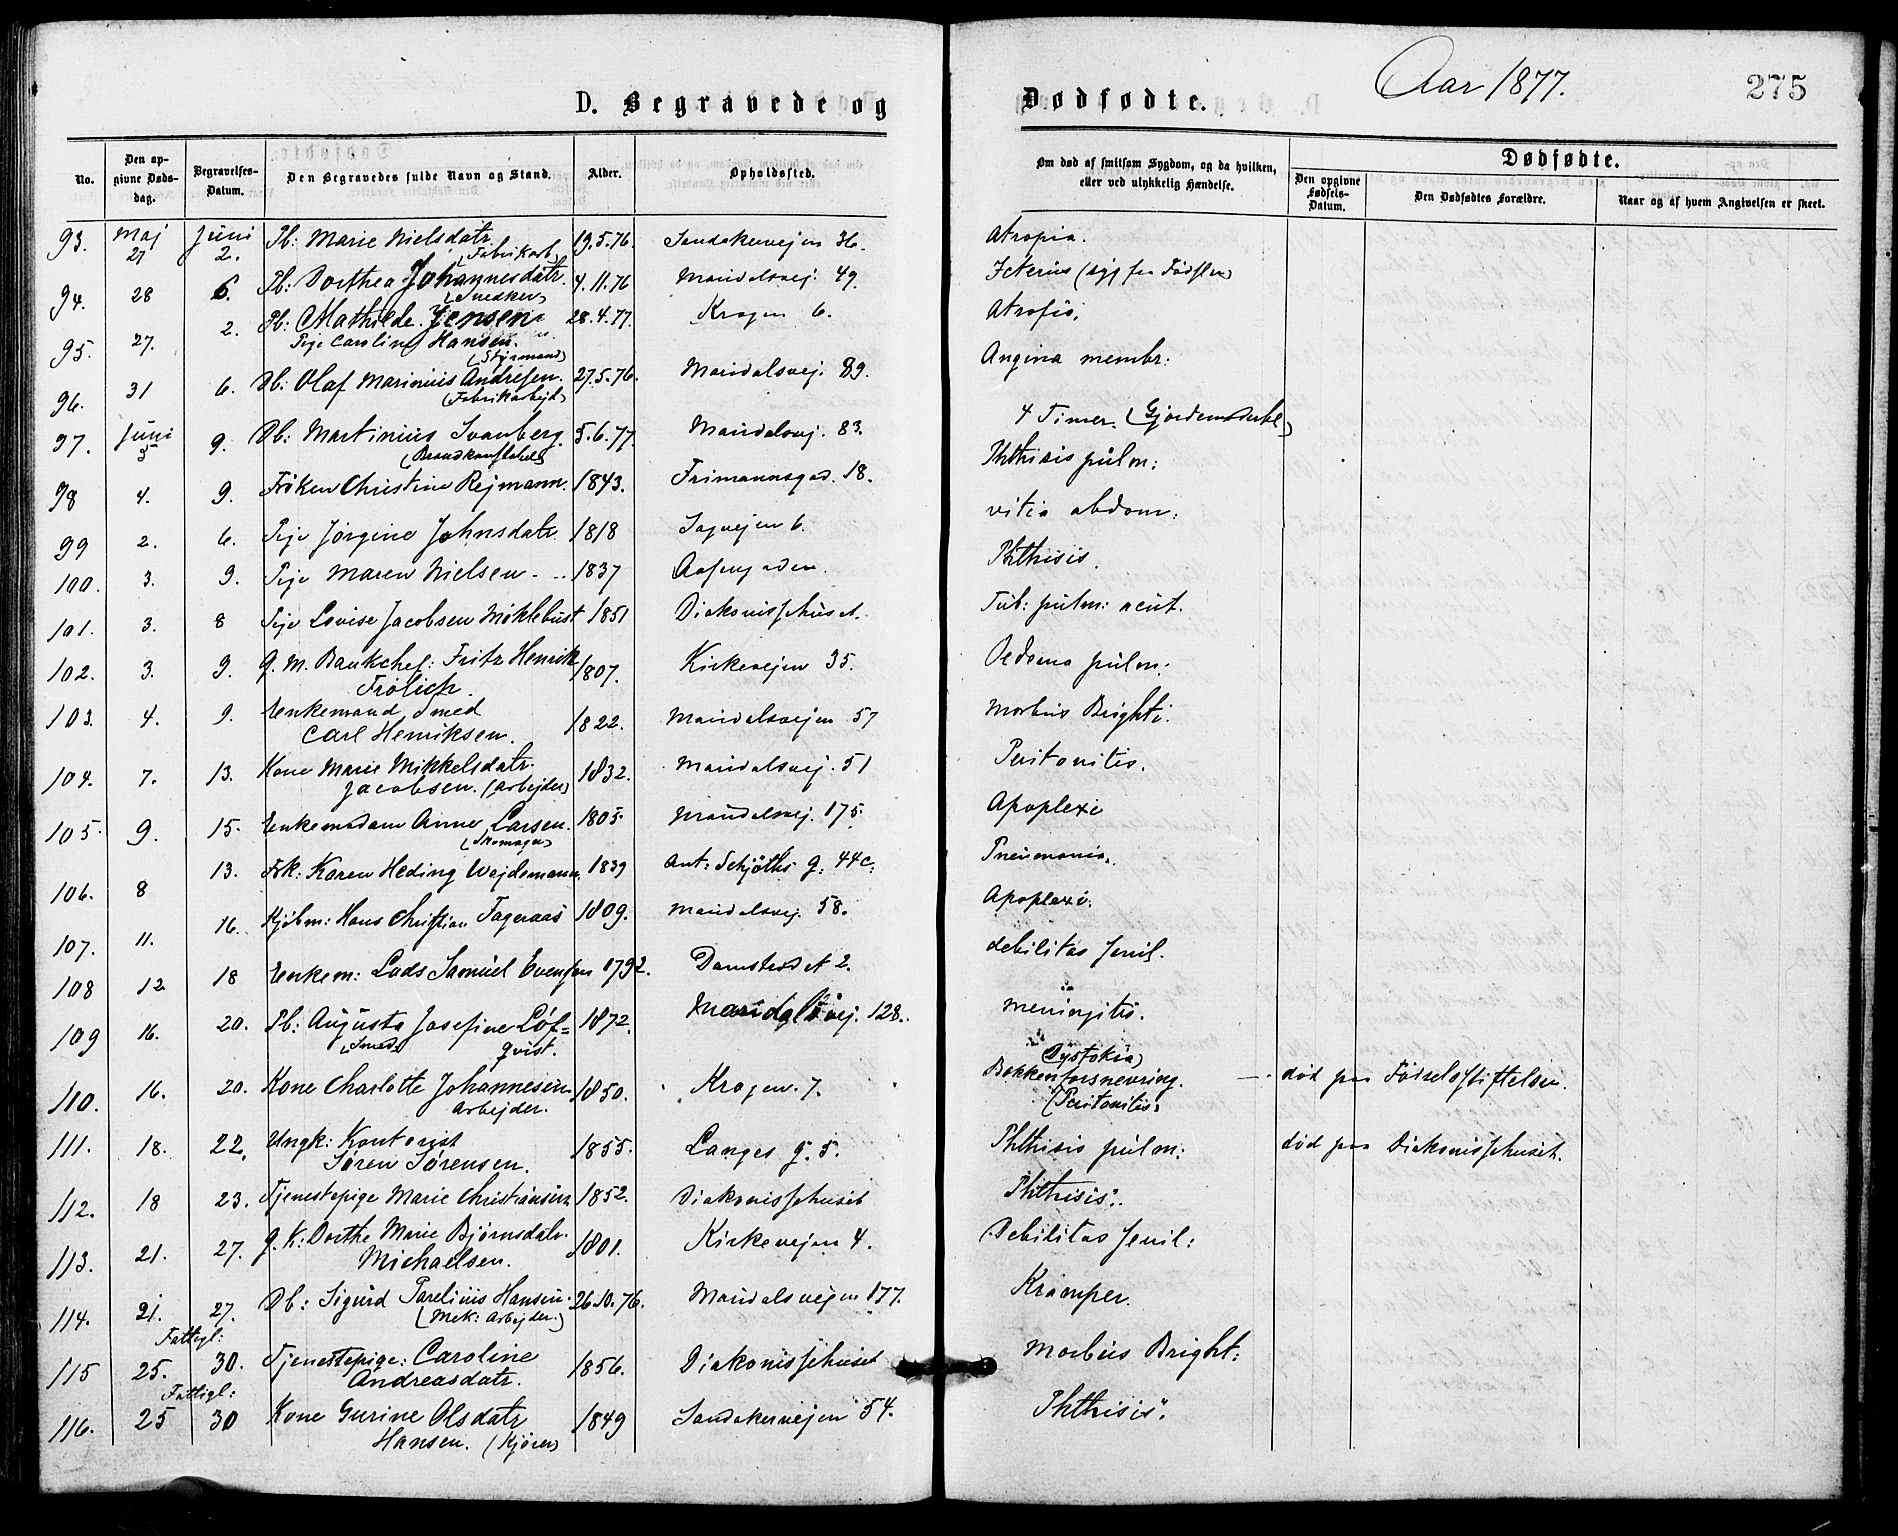 D. Begravede og
Dødfødte.
Aar 1877.
275
No.
Den opgivne Dødsdag.
Begravelses-Datum.
Den Begravedes fulde Navn og Stand.
Alder.
Opholdssted.
Om død af smitsom Sygdom, og da hvilken, eller ved ulykkelig Hændelse.
Dødfødte.
Den opgivne Fødsels-Datum.
Den Dødfødtes Forældre.
Naar og af hvem Angivelsen er skeet.
93. Maj 27 Juni 2. Pb: Marie Nielsdatr. 19.5.76. Sandakerveien 36. Atropia.
(Fabrikarb)
94. 28 6. Pb: Dorthea Johannesdatr. 4.11.76 Maridalsvej. 49. Icterus (syg fra Fødslen)
(Snedker)
95. 27. 2. Pb: Mathilde Jensen 28.4.77. Krogen 6. Atrofia.
Pige Caroline Hansen.
(Styrmand)
96. 31 6. Db: Olaf Marinius Andresen. 27.5.76. Maridalsvej. 89. Angina membr:
(Fabrikarbejd)
97. Juni 5 9. Db: Martinius Svanberg. 5.6.77. Maridalsvej. 83. 4 Timer.
(Brandkonstabel)
98 4. 9. Frøken Christine Rejmann. 1843. Frimannsgad. 18. Phthisis pulm:
99 2. 6. Pige Jørgine Johnsdatr. 1818 Sagvejen 6. vitia abdom:
100. 3. 9. Pige Maren Nielsen. 1837 Aasengaden. Phthisis.
101. 3. 8 Pige Lovise Jacobsen Møklebust 1851 Diakonissehuset. Tub: pulm: acut.
102. 3. 9. g. M. Bankchef: Fritz Henrik 1807. Kirkevejen 35. Oedema pulm:
Frølich.
103. 4. 9. Enkemand Smed 1822. Maridalsvejen 57 Morbus Brighti.
Carl Henriksen.
104. 7. 13. Kone Marie Mikkelsdatr. 1832. Maridalsvej. 51 Peritonitis.
Jacobsen. (Arbejder)
105. 9. 15. Enkemadam Anne Larsen. 1805. Maridalsvej. 175. Apoplexi
(Skomager)
106. 8 13. Frk: Karen Heding Wejdemann. 1839 Ant: Schjøths g: 44c. Pneumonia.
107. 11. 16. Kjøbm: Hans Christian Fageraas 1809. Maridalsvej. 58. Apoplexi.
108 12 18 Enkem: Lads Samuel Evensen 1792. Damstrædet 2. debilitas senil.
109 16. 20. Pb: Augusta Josefine Løf= 1872. Maridalsvej. 128. Meningitis.
(Smed) qvist.
110. 16. 20. Kone Charlotte Johannesen 1850. Krogen. 7. Dystokia)
Arbejder. Bækkenforsnevring. død paa Fødselsstiftelsen.
(Peritonitis)
111. 18. 22. Ungk: Kontorist 1855. Langes g. 5. Phthisis pulm: død paa Diakonissehuset.
Søren Sørensen.
112. 18 23. Tjenestepige Marie Christiansen 1852. Diakonissehuset Phthisis.
113. 21. 27. g. K: Dorthe Marie Bjørnsdatr. 1801. Kirkevejen 4. Debilitas senil:
Michaelsen.
114. 21. 27. Db: Sigurd Parelius Hansen. 26.10.76. Maridalsvejen 177. Kramper.
(Mek: Arbejder.)
Fattigl:
115 25. 30. Tjenestepige: Caroline 1856. Diakonissehuset Morbus Bright:
Andreasdatr.
Fattigl:
116. 25 30 Kone Gurine Olsdatr 1849 Sandakerveien 54. Phthisis.
Hansen. (Kjører)